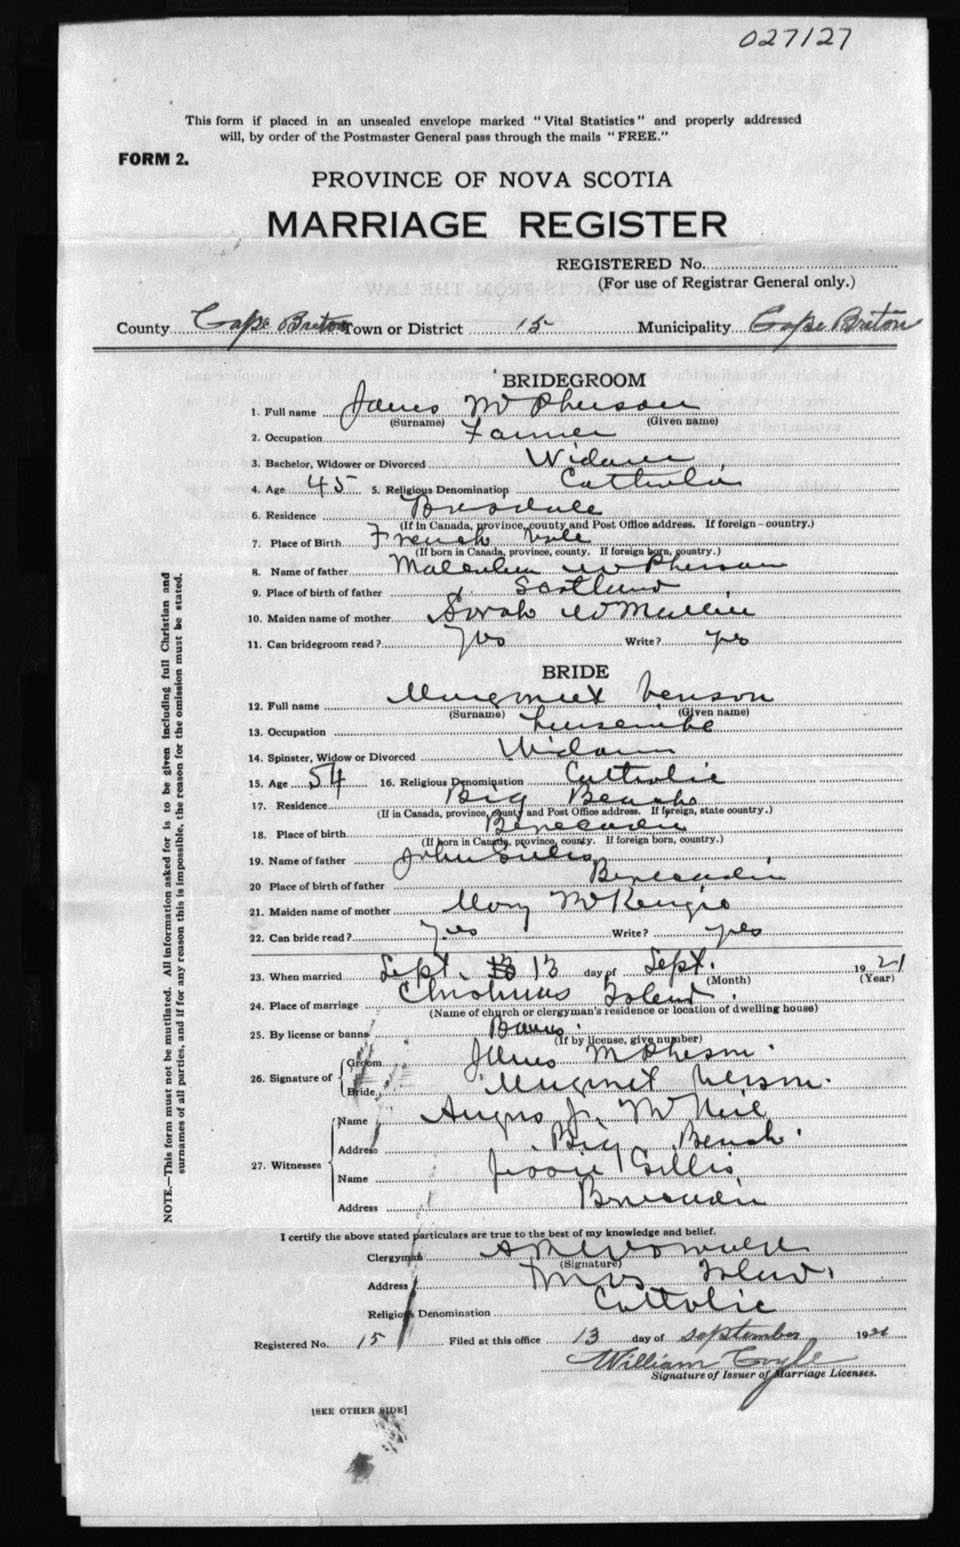 027127
This form if placed in an unsealed envelope marked "Vital Statistics" and properly addressed
will, by order of the Postmaster General pass through the mails "FREE."
FORM 2.
PROVINCE OF NOVA SCOTIA
MARRIAGE REGISTER
REGISTERED No.
(For use of Registrar General only.)
County Cape Breton Town or District 15 Municipality Cape Breton
BRIDEGROOM
1. Full name James McPherson
(Surname) (Given name)
2. Occupation Farmer
3. Bachelor, Widower or Divorced Widower
4. Age 45 5. Religious Denomination Catholic
6. Residence
(If in Canada, province, county and Post Office address. If foreign—country.)
7. Place of Birth French Vale
(If born in Canada, province, county. If foreign born, country.)
8. Name of father Malcolm McPherson
9. Place of birth of father Scotland
10. Maiden name of mother Sarah
11. Can bridegroom read? Yes Write? yes
BRIDE
12. Full name Margaret
(Surname) (Given name)
13. Occupation
14. Spinster, Widow or Divorced Widow
15. Age 54 16. Religious Denomination Catholic
17. Residence Big Beach
(If in Canada, province, county and Post Office address. If foreign, state country.)
18. Place of birth Beneaudin
(If born in Canada, province, county. If foreign born, country.)
19. Name of father John Gillis
20 Place of birth of father Beneaudin
21. Maiden name of mother Mary McKenzie
22. Can bride read? yes Write? yes
23. When married Sept. 13 day of Sept. 1921
(Month) (Year)
24. Place of marriage Christmas Island.
(Name of church or clergyman's residence or location of dwelling house)
25. By license or banns Banns.
(If by license, give number)
26. Signature of Groom James McPherson.
Bride Margaret
27. Witnesses Name Angus J. McNeil
Address Big Beach.
Name Jessie Gillis
Address Beneaudin
I certify the above stated particulars are true to the best of my knowledge and belief.
Clergyman
(Signature)
Address Xmas Island.
Religious Denomination Catholic
Registered No. 15 Filed at this office 13 day of September 1921
William Coyle
Signature of Issuer of Marriage Licenses.
[SEE OTHER SIDE]
NOTE.—This form must not be mutilated. All information asked for is to be given including full Christian and
surnames of all parties, and if for any reason this is impossible, the reason for the omission must be stated.